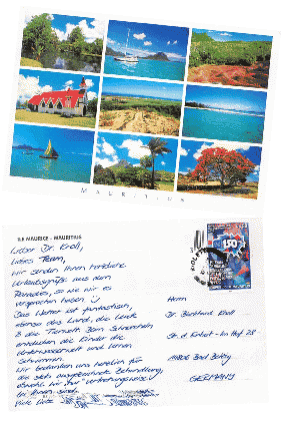 MAURITIUS
ILE MAURICE - MAURITIUS
Lieber Dr. Kroll,
liebes Team,
wir senden Ihnen herzliche
Urlaubsgrüße aus dem
Paradies, so wie wir es
vergessen haben
Das Wetter ist fantastisch,
ebenso das Land, die Leute
& die Tierwelt. Beim Schnorcheln
entdecken die Kinder die
Unterwasserwelt und lernen
Schwimmen.
Wir bedanken uns herzlich für
die stets ausgezeichnete Behandlung,
obwohl wir "nur" vertretungsweise
bei Ihnen sind.
Viele liebe
150
Herrn
Dr. Burkhard Kroll
Bad
GERMANY